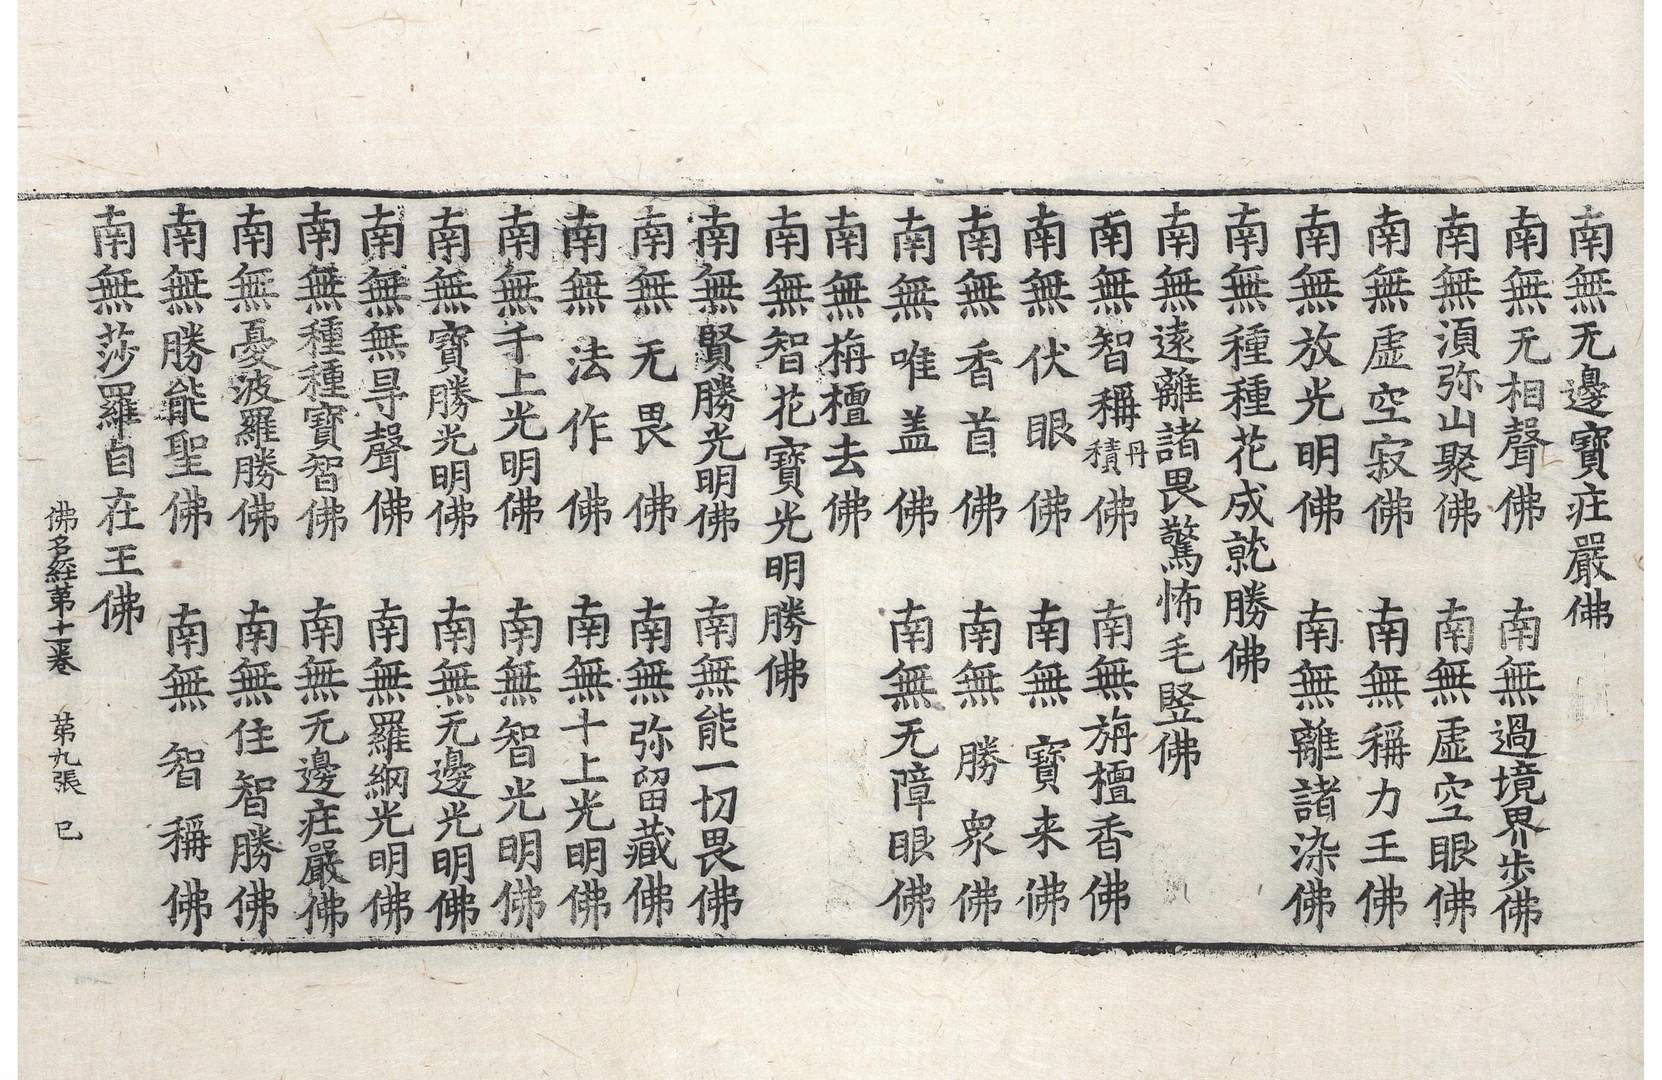 南無无邊寶庄嚴佛
南無无相聲佛　南無過境界步佛
南無湏弥山聚佛　南無虛空眼佛
南無虛空寂佛　南無稱力王佛
南無放光明佛　南無離諸染佛
南無種種花成就勝佛
南無遠離諸畏驚怖毛竪佛
南無智稱丹積佛　南無旃檀香佛
南無伏眼佛　南無寶来佛
南無香首佛　南無勝衆佛
南無唯盖佛　南無无障眼佛
南無栴檀去佛
南無智花寶光明勝佛
南無賢勝光明佛　南無能一切畏佛
南無无畏佛　南無弥留藏佛
南無法作佛　南無十上光明佛
南無千上光明佛　南無智光明佛
南無寶勝光明佛　南無无邊光明佛
南無無㝵聲佛　南無羅網光明佛
南無種種寶智佛　南無无邊庄嚴佛
南無憂波羅勝佛　南無住智勝佛
南無勝能聖佛　南無智稱佛
南無莎羅自在王佛
佛名經第十二卷　第九張　巳